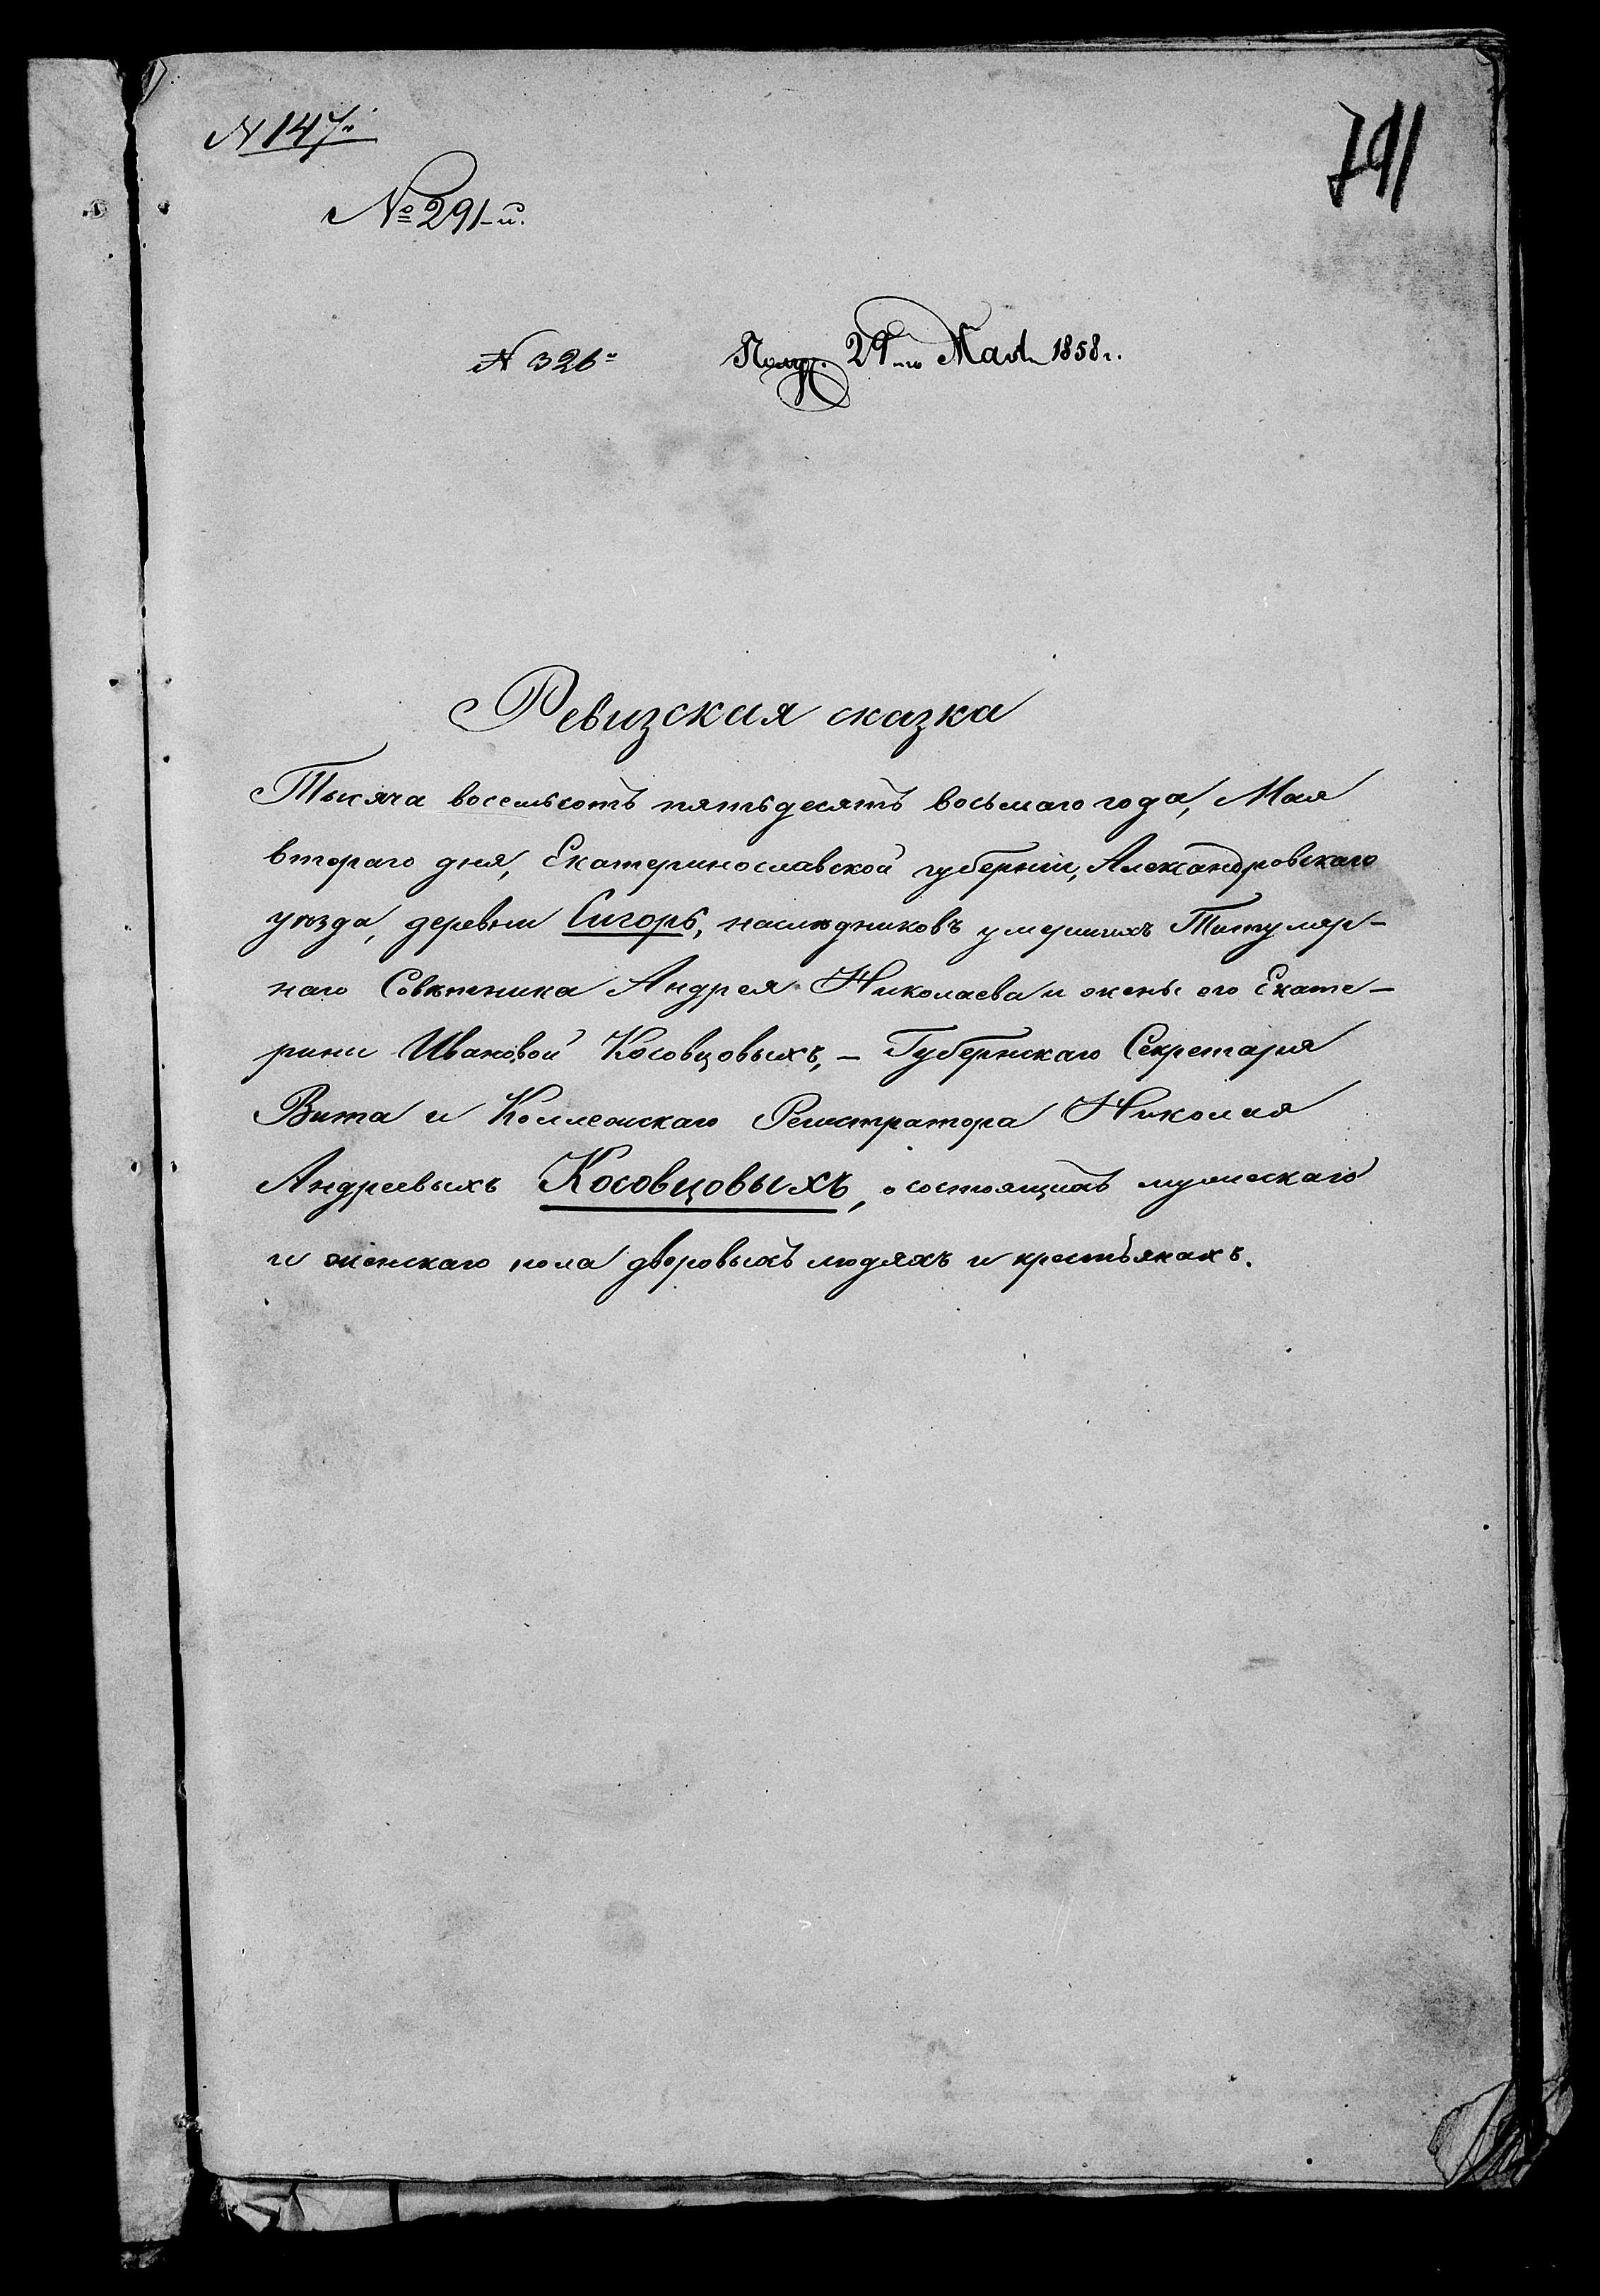 N 147й
791
№ 291-й.
N 326й Полу. 29го Мая 1858 г.
Ревизская сказка
Тысяча восемьсотъ пятьдесятъ восьмаго года, Мая
втораго дня, Екатеринославской губерніи, Александровскаго
уѣзда, деревни Сигоръ, наслѣдниковъ умершихъ Титуляр-
наго Совѣтника Андрея Николаева и жены его Екате-
рины Ивановой Косовцовыхъ, – Губернскаго Секретаря
Вита и Коллежскаго Регистратора Николая
Андреевыхъ Косовцовыхъ, о состоящихъ мужескаго
и женскаго пола дворовыхъ людяхъ и крестьянахъ.